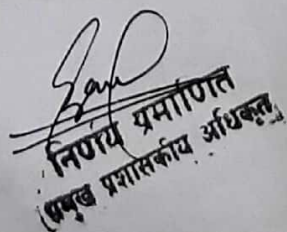 निर्णय प्रमाणित
(प्रमुख प्रशासकीय अधिकृत)